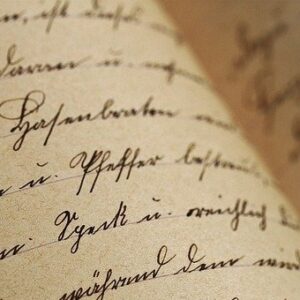 ist dieses
daran u.
Hasenbraten
u. Pfeffer bestreut,
Speck u. reichlich
während dem wird